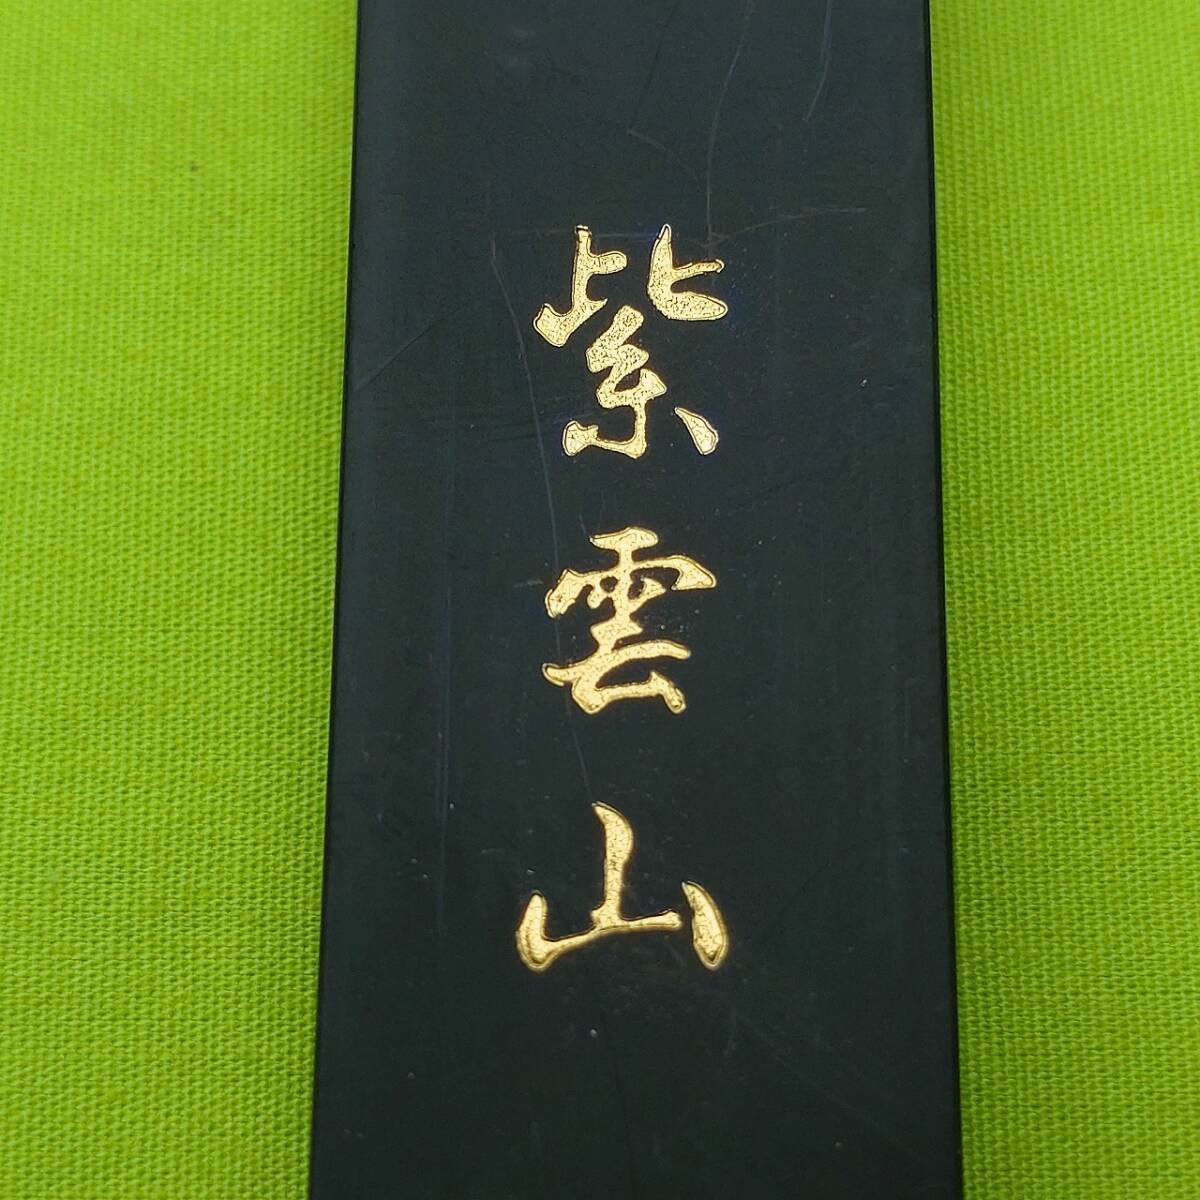 紫雲山